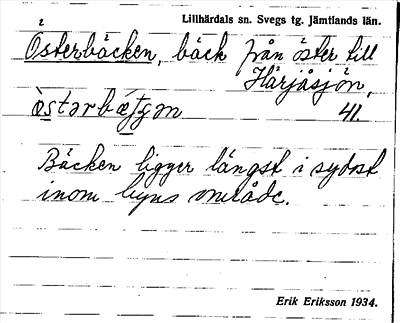 i Lillhärdals sn. Svegs tg. Jämtlands län.
Österbäcken, bäck från öster till
Härjåsjön,
41.
Bäcken ligger längst i sydost
inom byns område.
Erik Eriksson 1934.